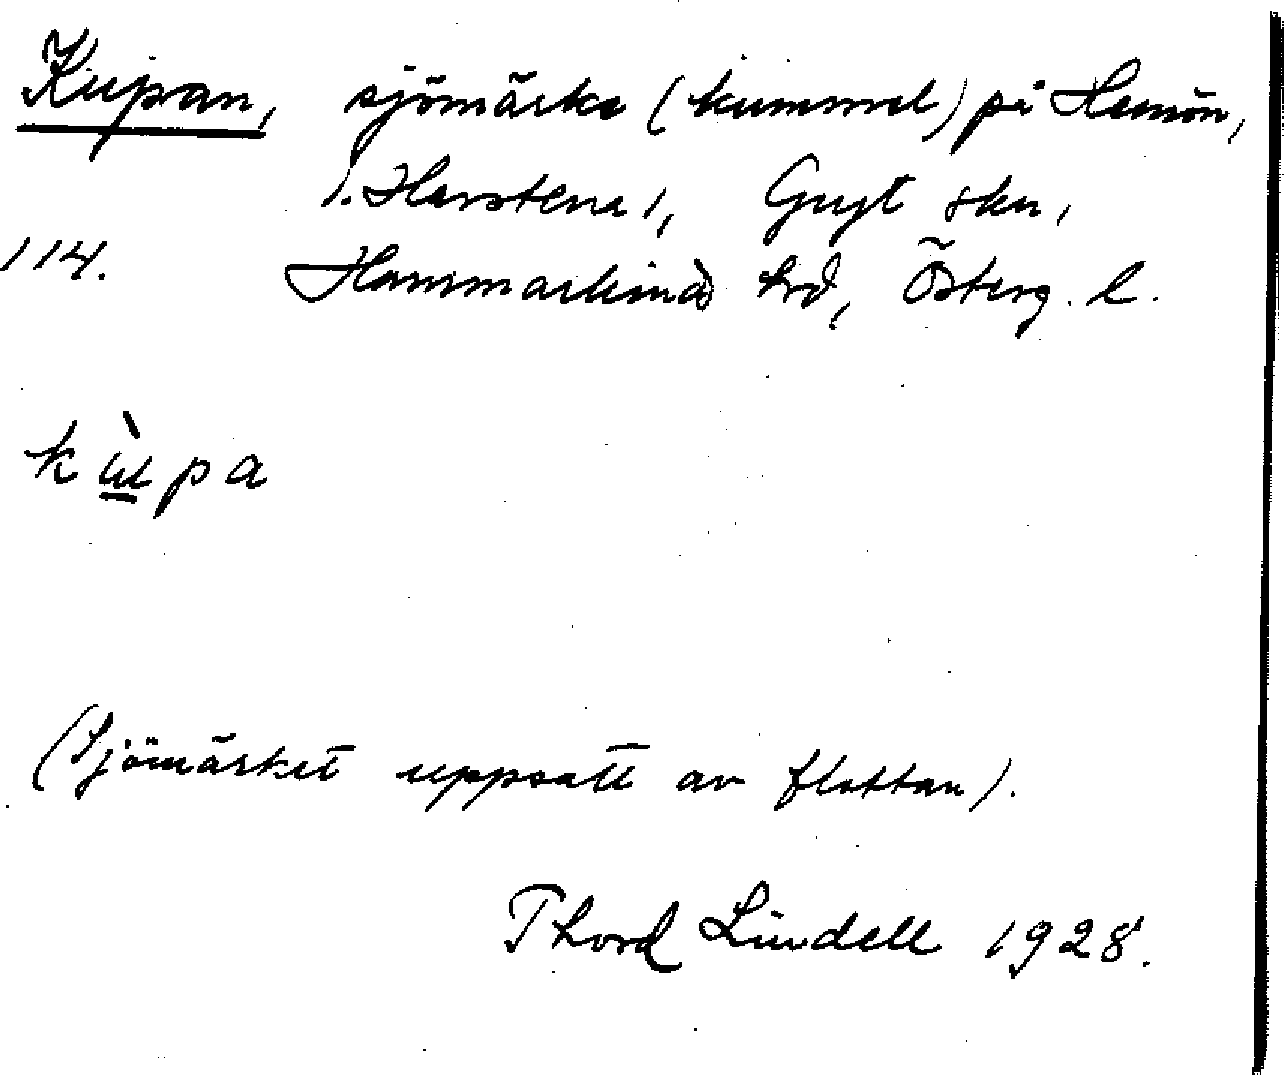 Kupan, sjömärke (kummel) på Hemön,
/. Harstena /, Gryt skn,
114. Hammarkinds hrd, Österg. l.
kùpa
(Sjömärket uppsatt av flottan).
Thord Lindell 1928.